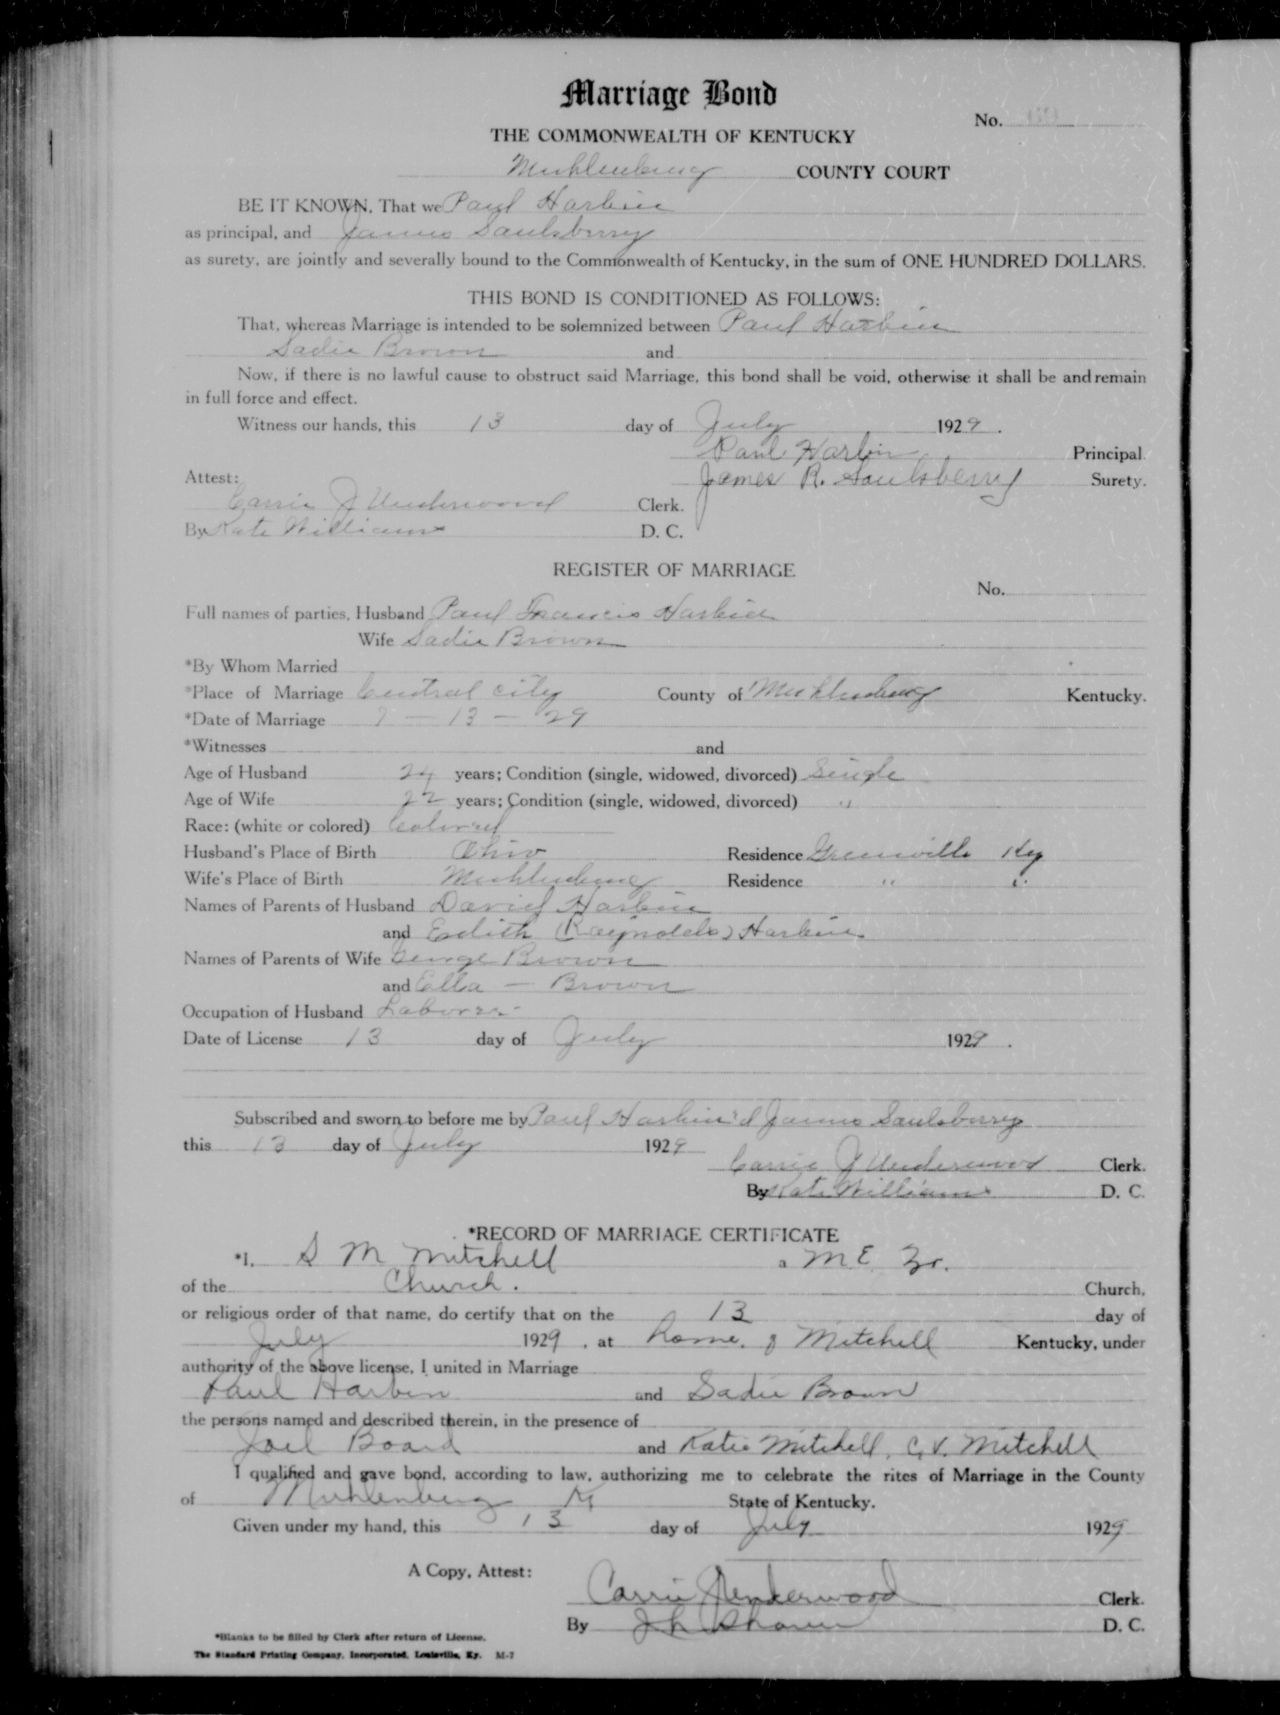 Marriage Bond
No.
THE COMMONWEALTH OF KENTUCKY
Muhlenberg COUNTY COURT
BE IT KNOWN, That we Paul Harbin
as principal, and James Saulsberry
as surety, are jointly and severally bound to the Commonwealth of Kentucky, in the sum of ONE HUNDRED DOLLARS.
THIS BOND IS CONDITIONED AS FOLLOWS:
That, whereas Marriage is intended to be solemnized between Paul Harbin
Sadie Brown and
Now, if there is no lawful cause to obstruct said Marriage, this bond shall be void, otherwise it shall be and remain
in full force and effect.
Witness our hands, this 13 day of July 1929.
Paul Harbin Principal
Attest: James R. Saulsberry Surety.
Carrie J Underwood Clerk.
By Kate Williams D. C.
REGISTER OF MARRIAGE
No.
Full names of parties, Husband Paul Francis Harbin
Wife Sadie Brown
*By Whom Married
*Place of Marriage Central City County of Muhlenberg Kentucky.
*Date of Marriage 7 — 13 — 29
*Witnesses and
Age of Husband 24 years; Condition (single, widowed, divorced) Single
Age of Wife 22 years; Condition (single, widowed, divorced) "
Race: (white or colored) Colored
Husband's Place of Birth Ohio Residence Greenville Ky
Wife's Place of Birth Muhlenberg Residence " "
Names of Parents of Husband David Harbin
and Edith (Raynolds) Harbin
Names of Parents of Wife George Brown
and Ella — Brown
Occupation of Husband Laborer
Date of License 13 day of July 1929.
Subscribed and sworn to before me by Paul Harbin & James Saulsberry
this 13 day of July 1929
Carrie J Underwood Clerk.
By Kate Williams D. C.
*RECORD OF MARRIAGE CERTIFICATE
*I, S M Mitchell a M E Zr.
of the Church. Church,
or religious order of that name, do certify that on the 13 day of
July 1929, at home of Mitchell Kentucky, under
authority of the above license, I united in Marriage
Paul Harbin and Sadie Brown
the persons named and described therein, in the presence of
Joel Board and Katie Mitchell, C. V. Mitchell
I qualified and gave bond, according to law, authorizing me to celebrate the rites of Marriage in the County
of Muhlenberg Ky State of Kentucky.
Given under my hand, this 13 day of July 1929
A Copy, Attest:
Carrie J Underwood Clerk.
By Shaver D. C.
*Blanks to be filled by Clerk after return of License.
The Standard Printing Company, Incorporated, Louisville, Ky. M-7